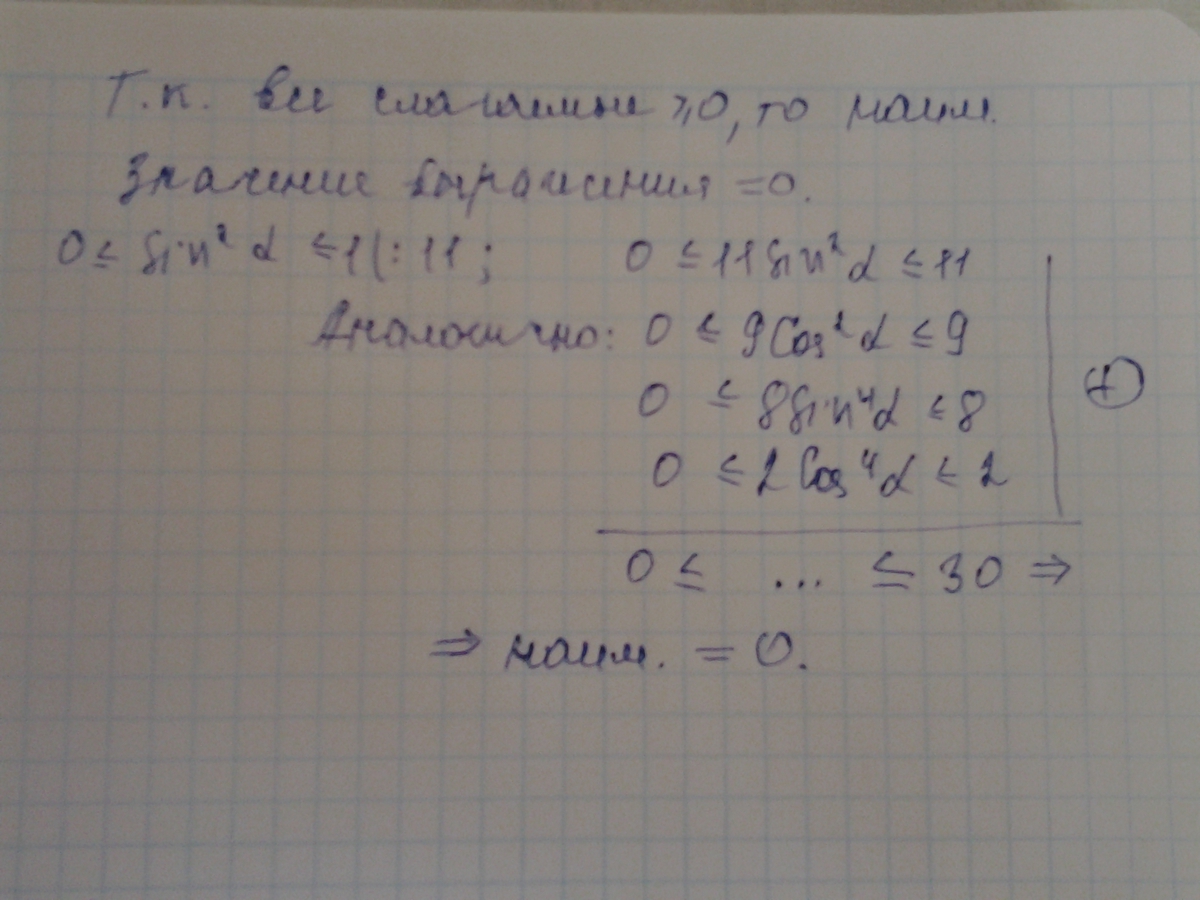 Т.к. все слагаемые ≥0, то наим.
Значение выражения =0.
0 ≤ Sin² α ≤1 |: 11 ; 0 ≤ 11 Sin² α ≤ 11
Аналогично: 0 ≤ 9 Cos² α ≤ 9
0 ≤ 8 Sin⁴ α ≤ 8
0 ≤ 2 Cos⁴ α ≤ 2
+
0 ≤ ... ≤ 30 ⇒
⇒ наим. = 0.